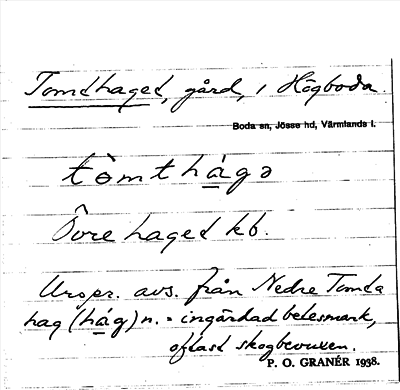 Tomthaget, gård, i Högboda.
Boda sn, Jösse hd, Värmlands l.
tòmthágə
Övre haget kb.
Urspr. avs. från Nedre Tomta
hag (hág) n. = ingärdad betesmark,
oftast skogbevuxen.
P. O. GRANÉR 1938.